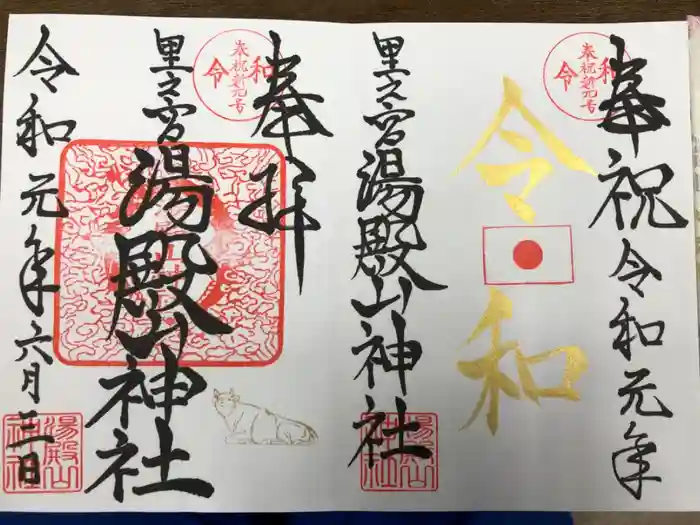 奉祝 令和元年
令和
里之宮 湯殿山神社
奉祝新元号
令和
奉拝
里之宮 湯殿山神社
令和元年六月三日
奉祝新元号
令和
湯殿山神社
湯殿山神社